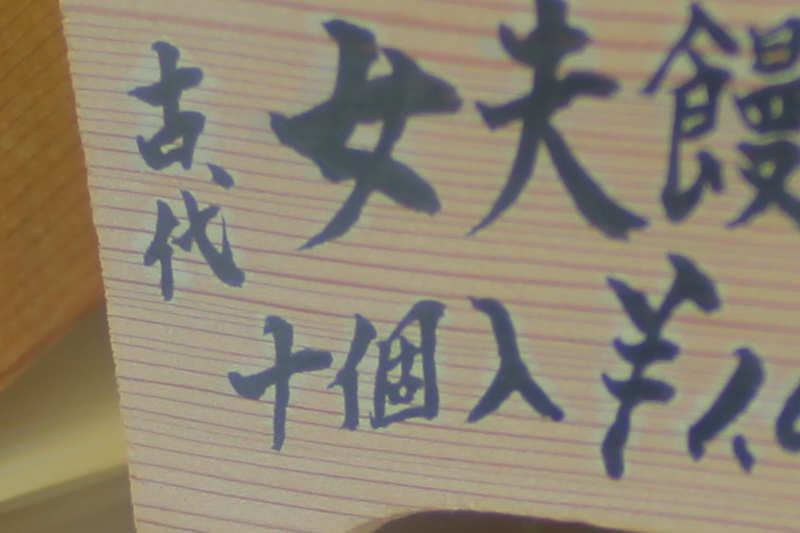 古代
女夫饅
十個入 ¥1,